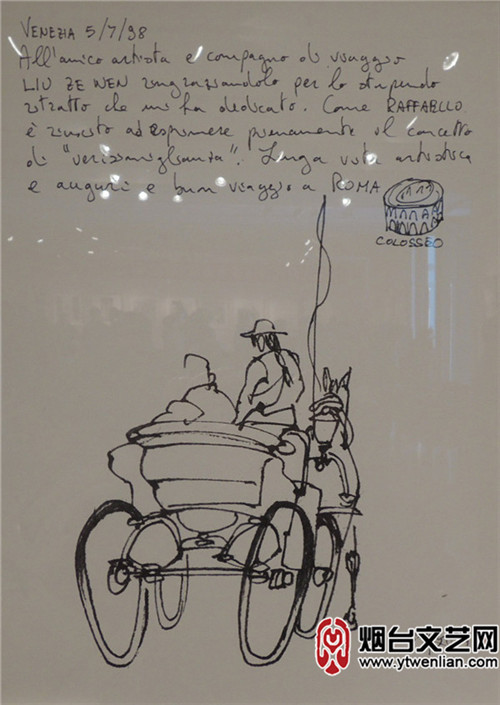 VENEZIA 5/7/98
All'amico artista e compagno di viaggio
LIU ZE WEN ringraziandolo per lo stupendo
ritratto che mi ha dedicato. Come RAFFAELLO
è riuscito ad esprimere pienamente il concetto
di "verissimiglianza". Lunga vita artistica
e auguri e buon viaggio a ROMA
COLOSSEO
烟台文艺网
www.ytwenlian.com